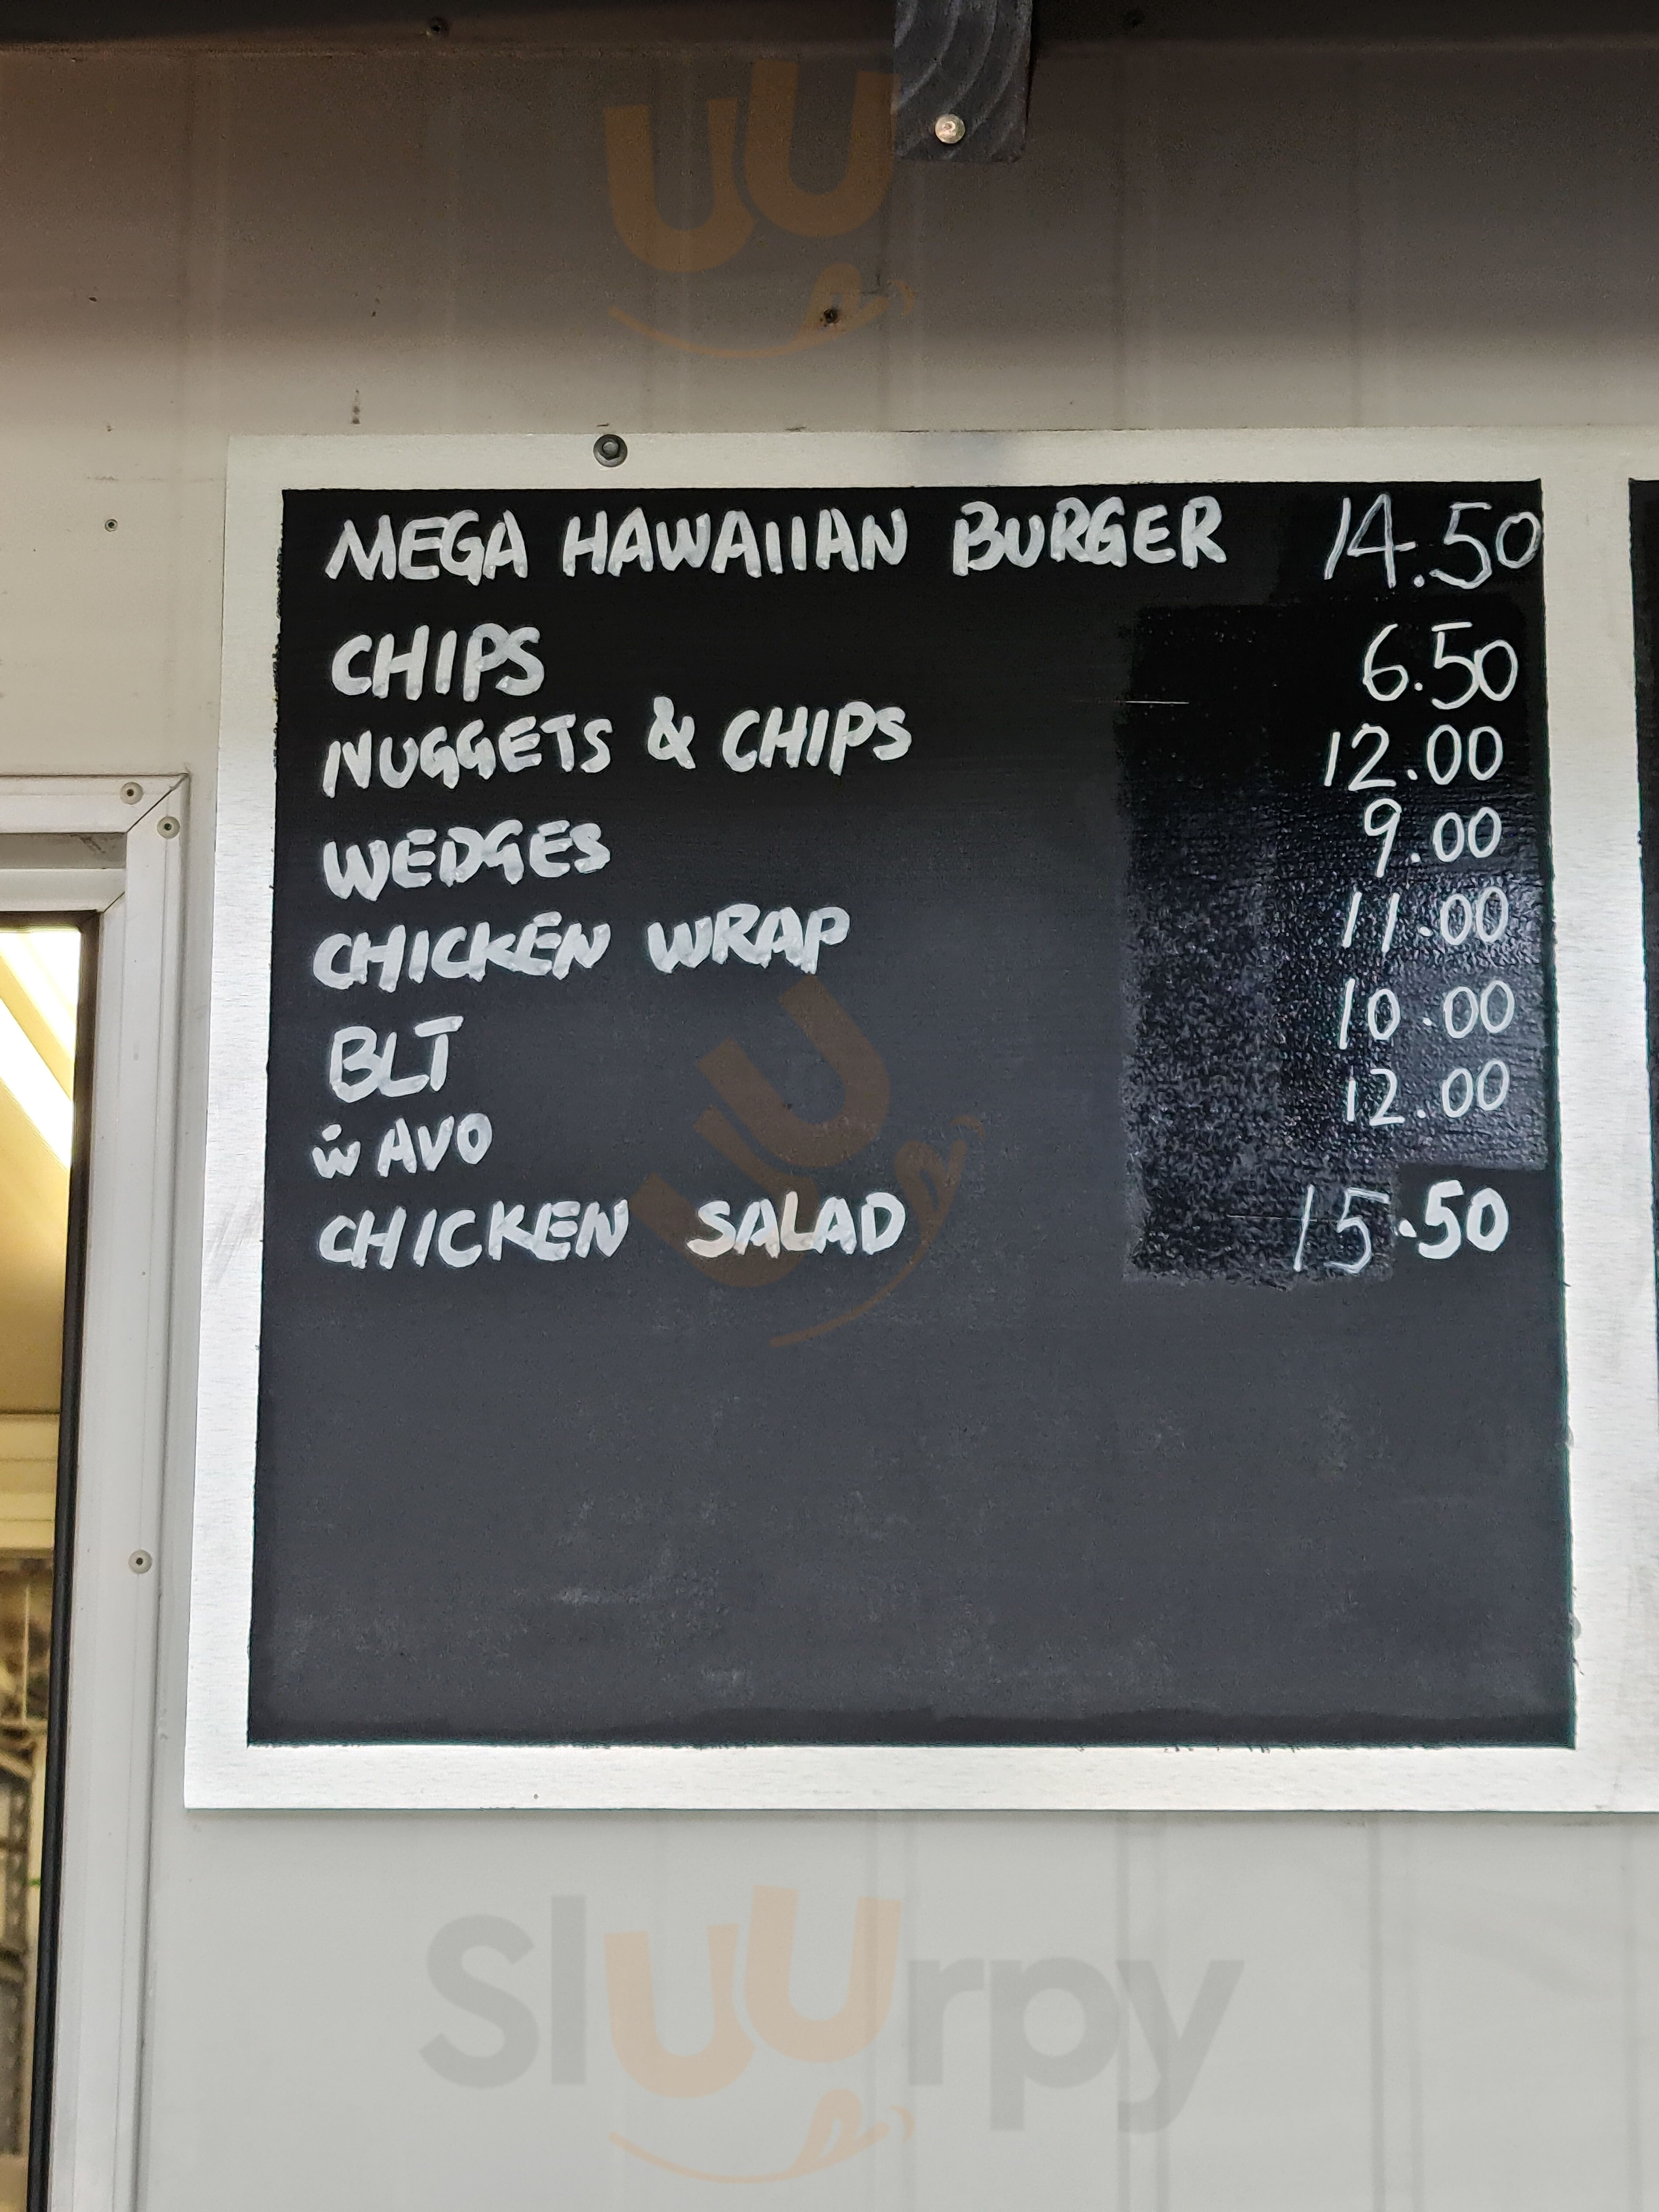 MEGA HAWAIIAN BURGER 14.50
CHIPS 6.50
NUGGETS & CHIPS 12.00
WEDGES 9.00
CHICKEN WRAP 11.00
BLT 10.00
w AVO 12.00
CHICKEN SALAD 15.50
Sluurpy